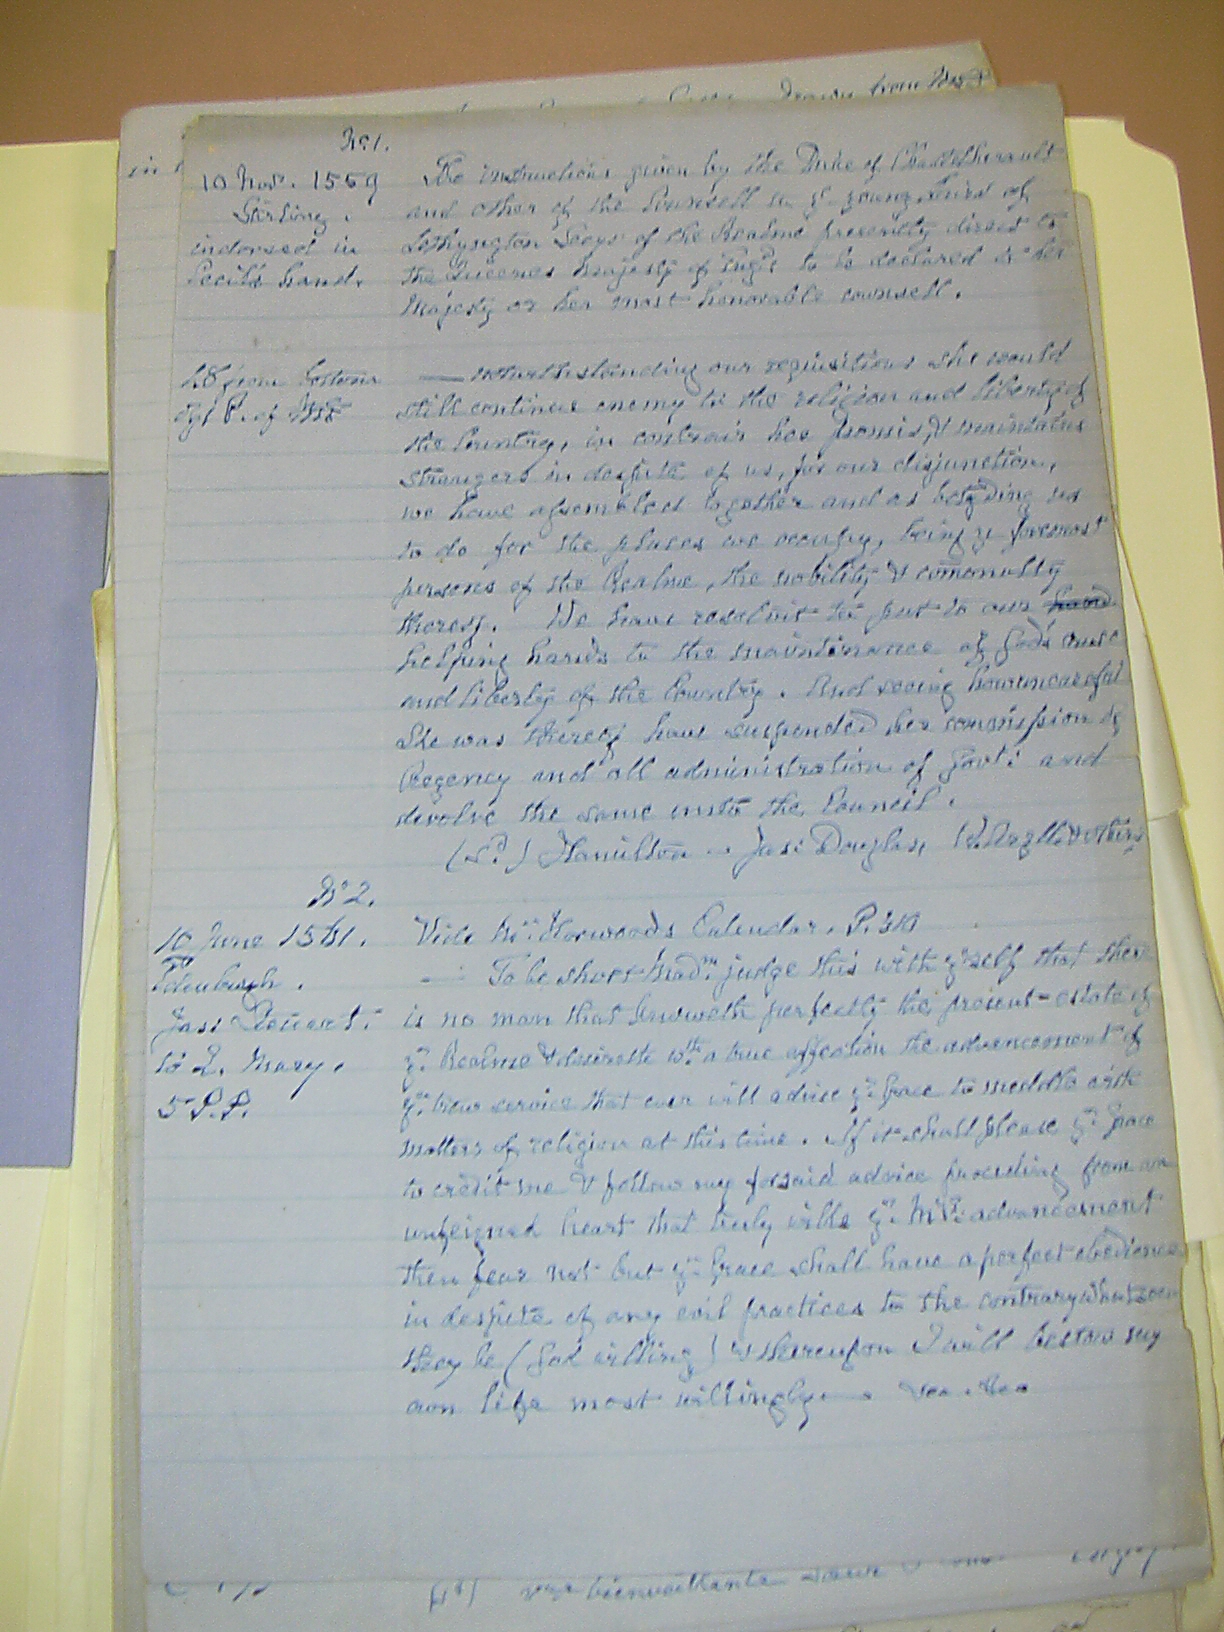 No 1.
10 Nov. 1559
Stirling.
indorsed in
Cecil's hand.
The instructions given by the Duke of Chastelherault
and other of the Counsell to ye young Laird of
Lethyngton Secys of the Realme presently direct to
the Queenes Majesty of Engd to be declared to her
Majesty or her most honorable counsell.
from
— notwithstanding our requisitions she would
still continue enemy to the religion and liberty of
the Country, in contrair her promis, & maintains
strangers in despite of us, for our disjunction,
we have assembled together and as
to do for the places we occupy, being ye foremost
persones of the Realme, the nobility & comonalty
thereof. We have resolvit to put to our hand
helping hands to the maintenance of God's cause
and liberty of the Country. And seeing
She was thereof have suspended her commission of
Regency and all administration of Govt: and
devolve the same unto the Council.
(Sd) Hamilton - Jas: Douglas, & others
No 2.
10 June 1561.
Edenburgh.
Jas: Stewart.
to Q. Mary.
5 P.P.
Vide Mr. Calendar. P.
— To be short Madm. judge this with yr self that there
is no man that knoweth perfectly the present estate of
yr. Realme & desireth wth a true affection the advancement of
yr. trew service that ever will advise yr. Grace to meddle with
matters of religion at this time. If it shall please yr. Grace
to credit me & follow my forsaid advice proceeding from an
unfeigned heart that truly wills yr. Mts: advancement
then fear not but yr. Grace shall have a perfect obedience
in despite of any evil practices to the contrary whatsoever
they be (God willing) & thereupon I will bestow my
own life most willingly
bienveillante sœur &